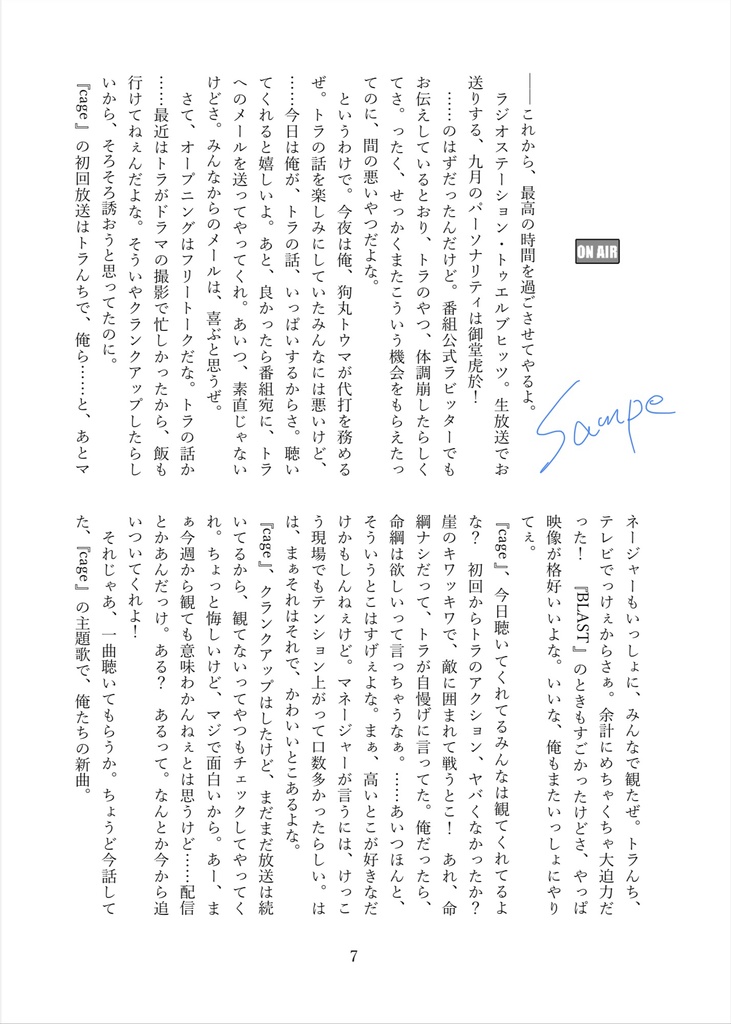 ON AIR
Sampe
――これから、最高の時間を過ごさせてやるよ。
　ラジオステーション・トゥエルブヒッツ。生放送でお
送りする、九月のパーソナリティは御堂虎於！
　……のはずだったんだけど。番組公式ラビッターでも
お伝えしているとおり、トラのやつ、体調崩したらしく
てさ。ったく、せっかくまたこういう機会をもらえたっ
てのに、間の悪いやつだよな。
　というわけで。今夜は俺、狗丸トウマが代打を務める
ぜ。トラの話を楽しみにしていたみんなには悪いけど、
……今日は俺が、トラの話、いっぱいするからさ。聴い
てくれると嬉しいよ。あと、良かったら番組宛に、トラ
へのメールを送ってやってくれ。あいつ、素直じゃない
けどさ。みんなからのメールは、喜ぶと思うぜ。
　さて、オープニングはフリートークだな。トラの話か
……最近はトラがドラマの撮影で忙しかったから、飯も
行けてねぇんだよな。そういやクランクアップしたらし
いから、そろそろ誘おうと思ってたのに。
『cage』の初回放送はトラんちで、俺ら……と、あとマ
ネージャーもいっしょに、みんなで観たぜ。トラんち、
テレビでっけぇからさぁ。余計にめちゃくちゃ大迫力だ
った！　『BLAST』のときもすごかったけどさ、やっぱ
映像が格好いいよな。いいな、俺もまたいっしょにやり
てぇ。
『cage』、今日聴いてくれてるみんなは観てくれてるよ
な？　初回からトラのアクション、ヤバくなかったか？
崖のキワッキワで、敵に囲まれて戦うとこ！　あれ、命
綱ナシだって、トラが自慢げに言ってた。俺だったら、
命綱は欲しいって言っちゃうなぁ。……あいつほんと、
そういうとこはすげぇよな。まぁ、高いとこが好きなだ
けかもしんねぇけど。マネージャーが言うには、けっこ
う現場でもテンション上がって口数多かったらしい。は
は、まぁそれはそれで、かわいいとこあるよな。
『cage』、クランクアップはしたけど、まだまだ放送は続
いてるから、観てないってやつもチェックしてやってく
れ。ちょっと悔しいけど、マジで面白いから。あー、ま
ぁ今週から観ても意味わかんねぇとは思うけど……配信
とかあんだっけ。ある？　あるって。なんとか今から追
いついてくれよ！
　それじゃあ、一曲聴いてもらうか。ちょうど今話して
た、『cage』の主題歌で、俺たちの新曲。
7